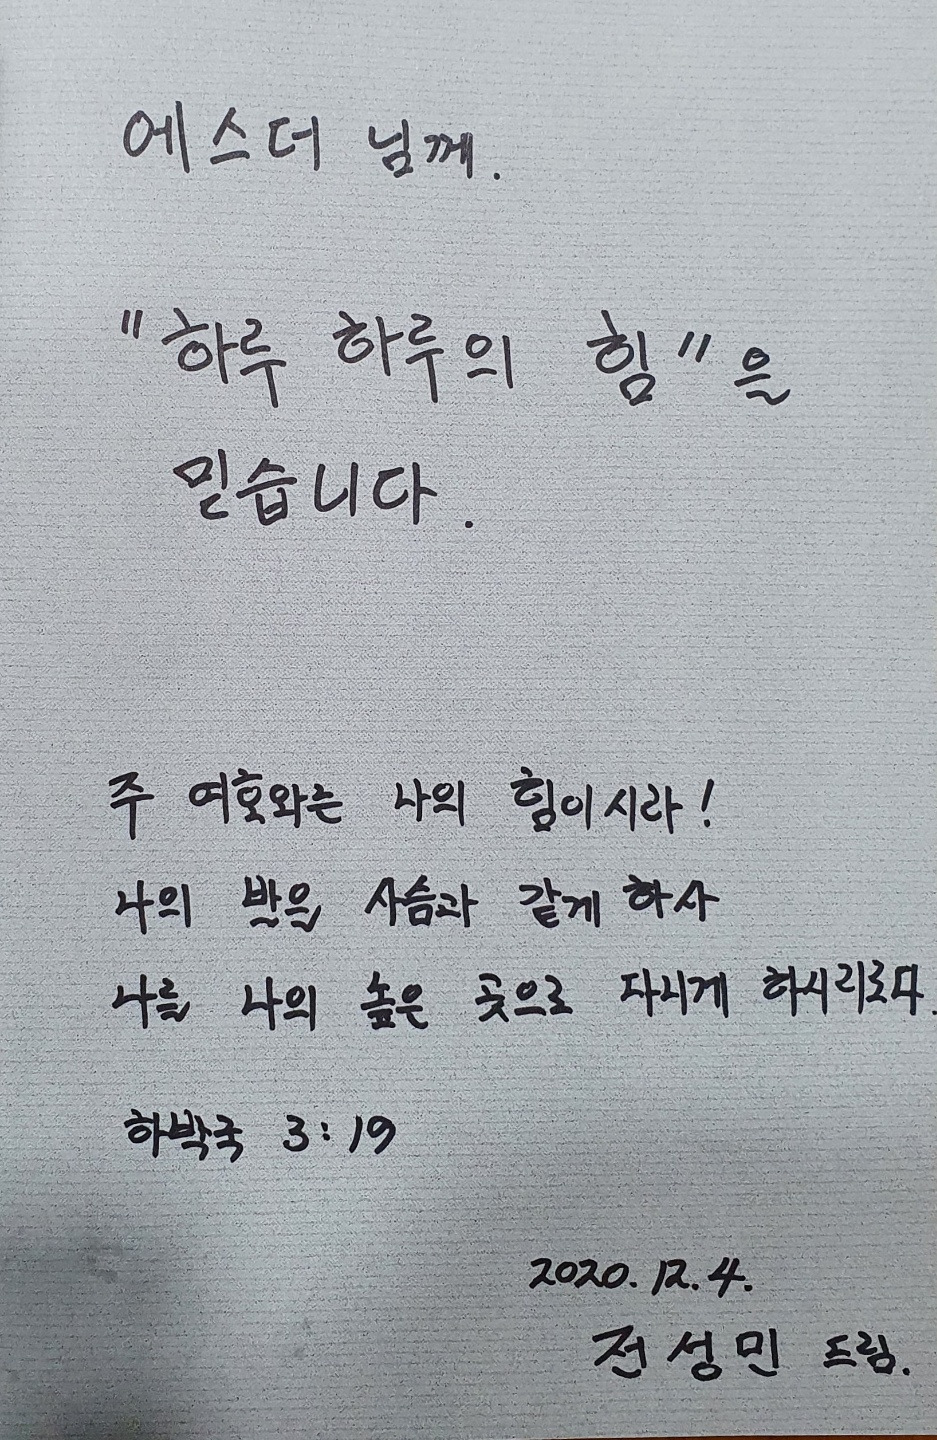 에스더 님께.
"하루 하루의 힘"을
믿습니다.
주 여호와는 나의 힘이시라!
나의 발을 사슴과 같게 하사
나를 나의 높은 곳으로 다니게 하시리로다.
하박국 3:19
2020.12.4.
전성민 드림.